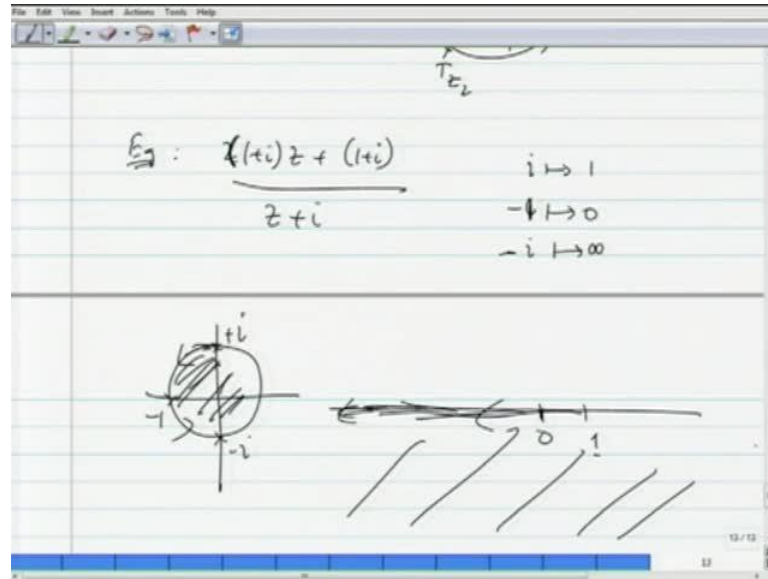 File Edit View Insert Actions Tools Help
T z₂
Eg : (1+i) z + (1+i)
z + i
i ↦ 1
-1 ↦ 0
-i ↦ ∞
+i
-1
-i
0 1
13 / 13
12